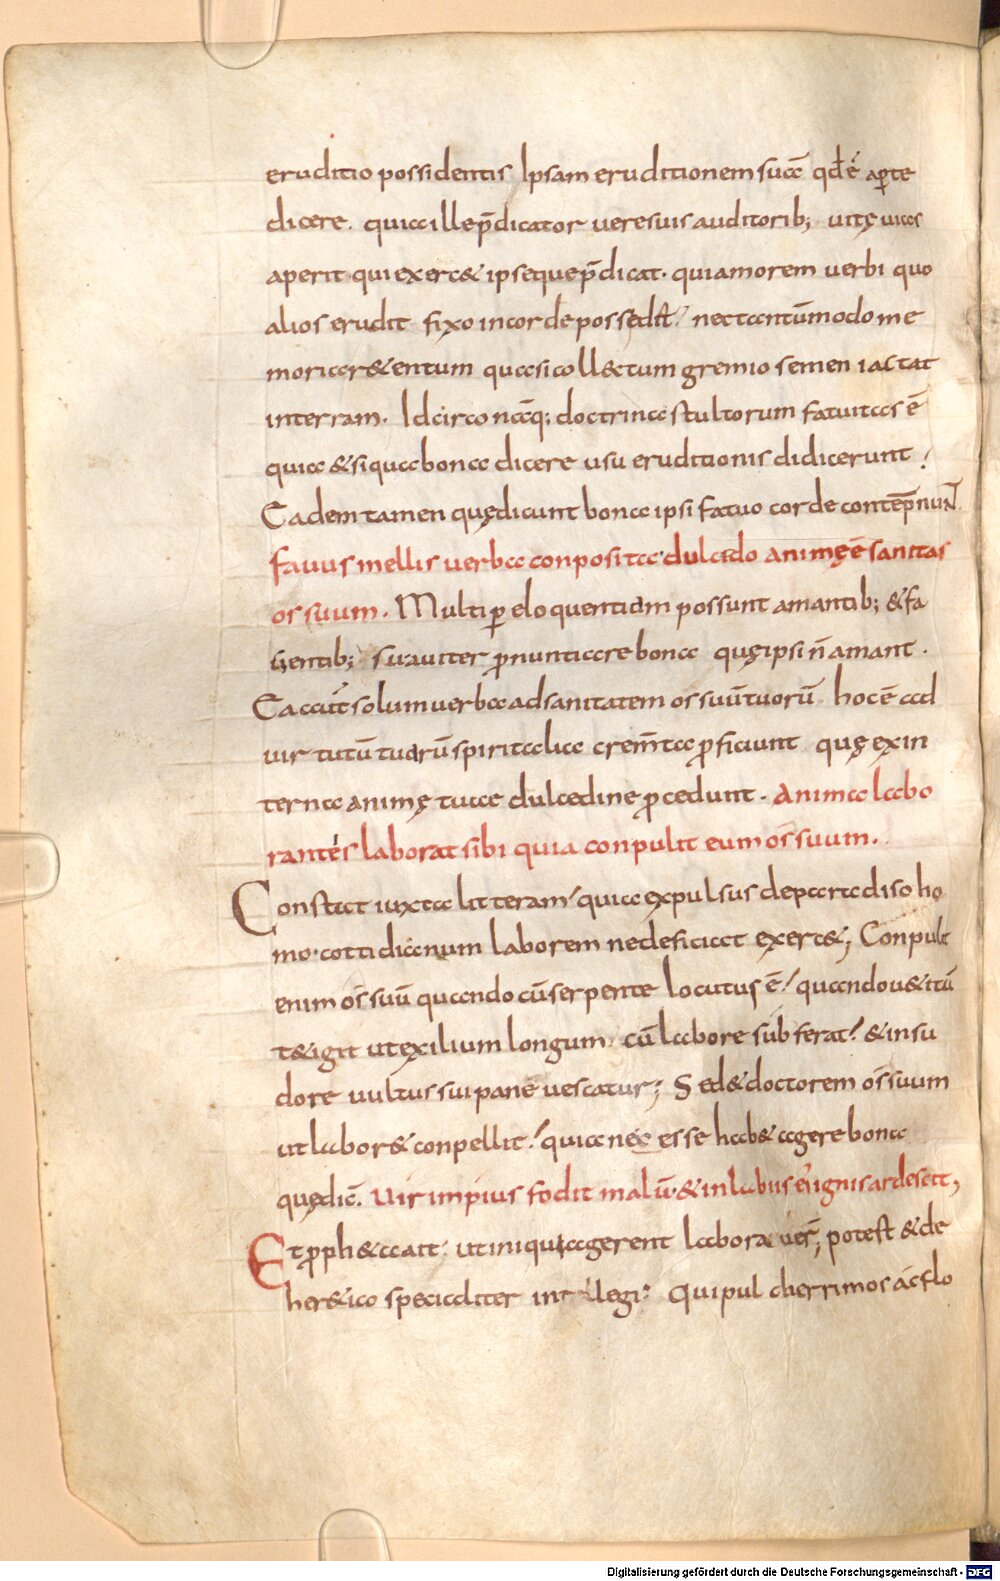 eruditio possidentis Ipsam eruditionem sua qđ ē ap̱te
dicere. quia ille p̄dicator vere suis auditorib; vitę vias
aperit qui exerc& ipse que p̄dicat· quia morem verbi quo
alios erudit fixo in corde possedit; nec tantūmodo me
moria r&entum quasi coll&tum gremio semen iactat
in terram. Idcirco nāq; doctrina stultorum fatuitas ē
quia & si qua bona dicere usu eruditionis didicerunt;
Eadem tamen quę dicunt bona ipsi fatuo corde contēpnunt
favus mellis verba conposita dulcido animę ē sanitas
ossuum. Multi ꝑ eloquentiam possunt amantib; & fa
ventib; suaviter ꝓnuntiare bona quę ipsi n̄ amant.
Ea aūt solum verba ad sanitatem ossuū tuorū hoc ē ad
virtutū tuarū spiritalia crem̄ta ꝓficiunt quę ex in
terna animę tuae dulcedine ꝓcedunt. Anima labo
rantis laborat sibi quia conpulit eum os suum.
Constat iuxta litteram quia expulsus de paradiso ho
mo cottidianum laborem ne deficiat exerc&; Conpulit
enim os suū quando cū serpente locutus ē quando v&itū
t&igit ut exilium longum cū labore sub ferat & in su
dore vultus sui pane vescatur; Sed & doctorem os suum
ut labor& conpellit quia nec esse hab& agere bona
quę dic̄. Vir impius fodit malū & in labiis ei' ignis ardescit,
Et ꝓph&a ait: ut inique agerent labora ver̄; potest & de
her&ico specialiter intellegi: Qui pulcherrimos ac flo
Digitalisierung gefördert durch die Deutsche Forschungsgemeinschaft - DFG